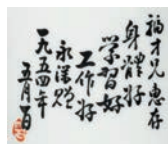 福才兄惠存
身體好
学習好
工作好
永泽赠
一九五四年
五月一日